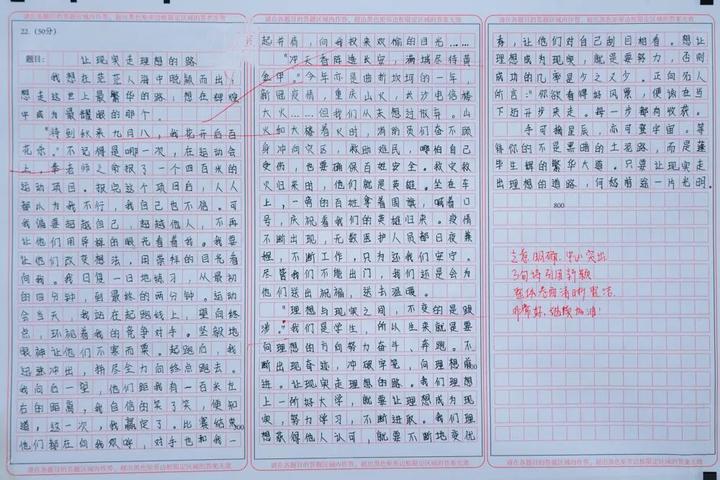 请在各题目的答题区域内作答，超出黑色矩形边框限定区域的答案无效
22.（50分）
题目： 让现实走理想的路
我想在茫茫人海中脱颖而出，
想走这世上最繁华的路，想在辉煌
中成为最耀眼的那个。
“待到秋来九月八，我花开后百
花杀。”不记得是哪一次，在运动会
上，老师之命报了一个四百米的
运动项目。报完这个项目后，人人
都认为我不行，我自己也不信。可
我偏要超越自己，超越他人，不再
让他们用异样的眼光看着我。我要
让他们改变想法，用崇拜的目光看
向我。我日复一日地练习，从最初
的四分钟，到最终的两分钟。运动
会当天，我站在起跑线上，望向终
点，环视着我的竞争对手。坚毅地
眼神让他们不寒而栗。起跑后，我
迅速冲出，竭尽全力向终点跑去。
我向后一望，他们距我有一百米左
右的距离，我自信的笑了笑，便知
道，这一次，我赢定了。比赛结束
他们都在向我欢呼，对手也和我一
请在各题目的答题区域内作答，超出黑色矩形边框限定区域的答案无效
请在各题目的答题区域内作答，超出黑色矩形边框限定区域的答案无效
起并肩，向我投来欢愉的目光……
“冲天香阵透长安，满城尽带黄
金甲。”今年亦是曲折坎坷的一年，
新冠疫情，重庆山火，长沙电信楼
大火……但我们从未想过放弃。山
火和大楼着火时，消防员们奋不顾
身冲向灾区，救助难民，哪怕自己
受伤，也要确保百姓安全。救灾救
火归来的，他们就是英雄。坐在车
上，一旁的百姓拿着国旗，喊着口
号，庆祝着我们的英雄归来。疫情
不断出现，无数医护人员都日夜兼
班，不断工作，只为还我们安宁。
尽管我们不能出门，我们还是会为
他们送出祝福，送去温暖。
“理想与现实之间，不变的是跋
涉。”我们是学生，所从生来就是要
向理想的方向努力奋斗、奔跑。不
断出现奇迹，冲破牢笼，向理想前
进。让现实走理想的路。我们理想
上一所好大学，就要让理想成为现
实，努力学习，不断进取。我们理
想获得他人认可，就要不断地变优
请在各题目的答题区域内作答，超出黑色矩形边框限定区域的答案无效
请在各题目的答题区域内作答，超出黑色矩形边框限定区域的答案无效
秀，让他们对自己刮目相看。想让
理想成为现实，就是要努力，否则
成功的几率是少之又少。正向别人
所言：“你欲看得好风景，便须在当
下迈开步来走。每一步都有收获。
手可摘星辰，亦可登宇宙。等
待你的不是黑暗的土泥路，而是蓬
毕生辉的繁华大道。只要让现实走
出理想的道路，何愁前路一片光明。
800
立意明确，中心突出
引句特别有新颖
整体卷面清晰整洁
非常好，继续加油！
请在各题目的答题区域内作答，超出黑色矩形边框限定区域的答案无效